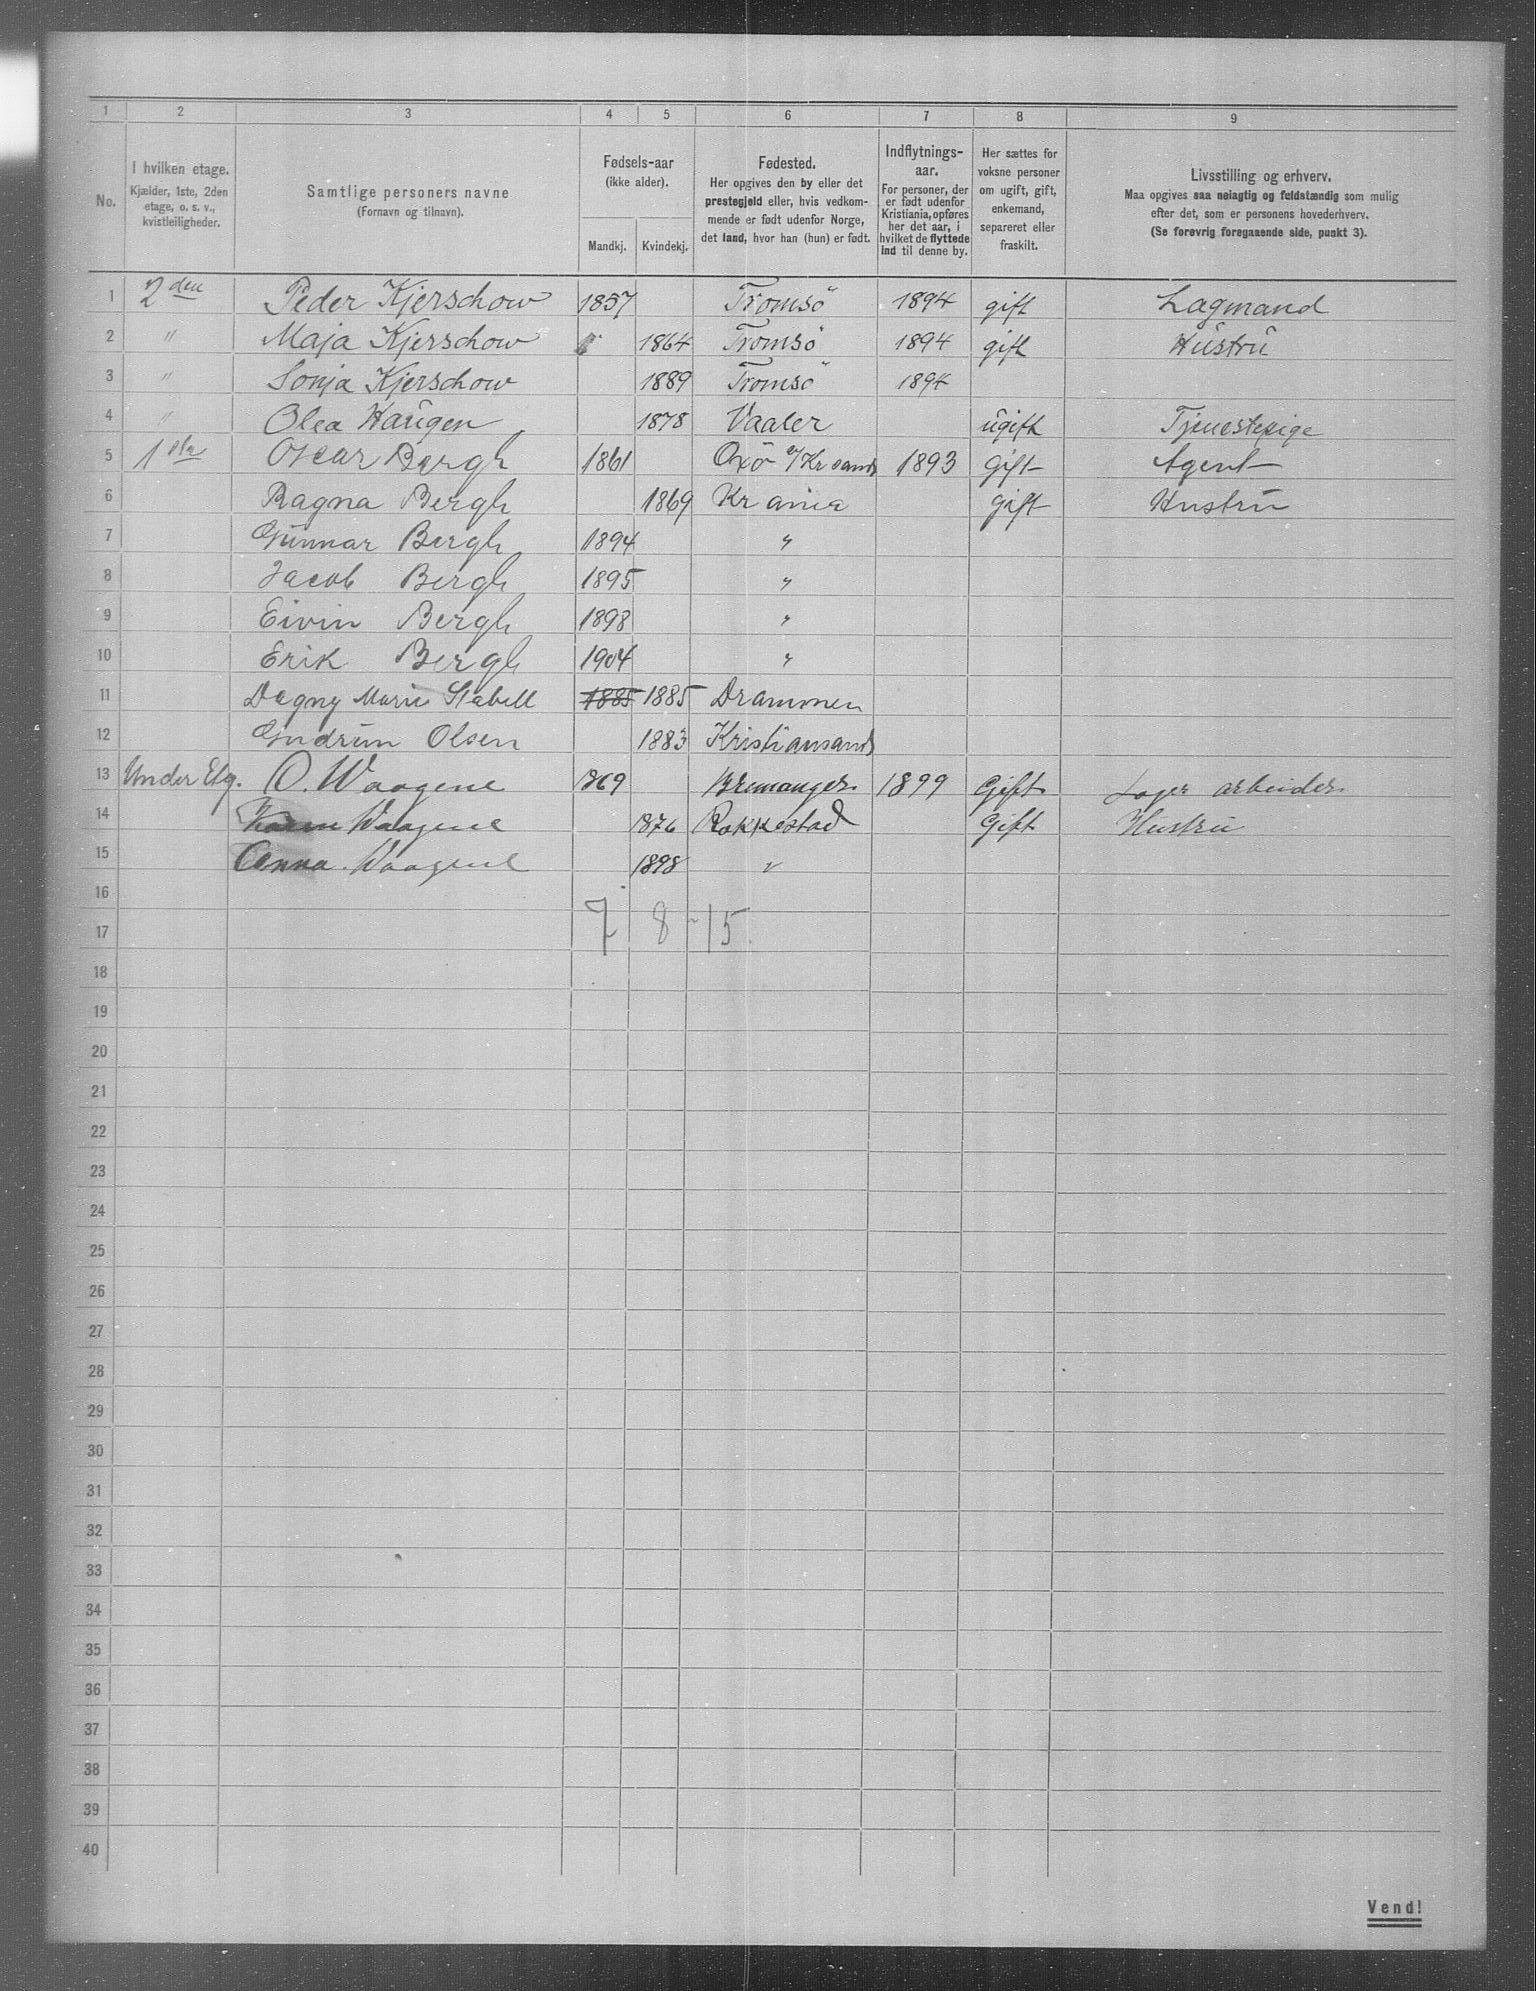 1 2 3 4 5 6 7 8 9
No.
I hvilken etage.
Kjælder, 1ste, 2den
etage, o. s. v.,
kvistleiligheder.
Samtlige personers navne
(Fornavn og tilnavn).
Fødsels-aar
(ikke alder).
Mandkj. Kvindekj.
Fødested.
Her opgives den by eller det
prestegjeld eller, hvis vedkom-
mende er født udenfor Norge,
det land, hvor han (hun) er født.
Indflytnings-
aar.
For personer, der
er født udenfor
Kristiania, opføres
her det aar, i
hvilket de flyttede
ind til denne by.
Her sættes for
voksne personer
om ugift, gift,
enkemand,
separeret eller
fraskilt.
Livsstilling og erhverv.
Maa opgives saa nøiagtig og fuldstændig som mulig
efter det, som er personens hovederhverv.
(Se forøvrig foregaaende side, punkt 3).
1 2den Peder Kjerschow 1857 Tromsö 1894 gift Lagmand
2 " Maja Kjerschow 1864 Tromsö 1894 gift Hustru
3 " Sonja Kjerschow 1889 Tromsö 1894
4 " Olea Haugen 1878 Vaaler ugift Tjenestepige
5 1ste Oscar Bergh 1861 Oxö v/Kr sand 1893 Gift Agent
6 Ragna Bergh 1869 Kr ania Gift Hustru
7 Gunnar Bergh 1894 "
8 Jacob Bergh 1895 "
9 Eivin Bergh 1898 "
10 Erik Bergh 1904 "
11 Dagny Marie Stabell 1885 1885 Drammen
12 Gudrun Olsen 1883 Kristiansand
13 Under Etg. O. Waagene 1869 Bremanger 1899 Gift Lager arbeider
14 Waagene 1876 Rakkestad Gift Hustru
15 Anna Waagene 1898 "
16
17 7 8 - 15
18
19
20
21
22
23
24
25
26
27
28
29
30
31
32
33
34
35
36
37
38
39
40
Vend!